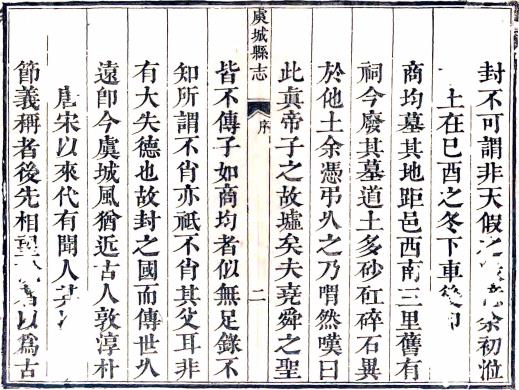 封不可謂非天假之余初涖
土在己酉之冬下車
商均墓其地距邑西南三里舊有
祠今廢其墓道土多砂矼碎石異
於他土余憑弔久之乃喟然嘆曰
此眞帝子之故墟矣夫堯舜之聖
虞城縣志
序
二
皆不傳子如商均者似無足錄不
知所謂不肖亦祇不肖其父耳非
有大失德也故封之國而傳世久
遠卽今虞城風猶近古人敦淳朴
唐宋以來代有聞人
節義稱者後先相望以爲古